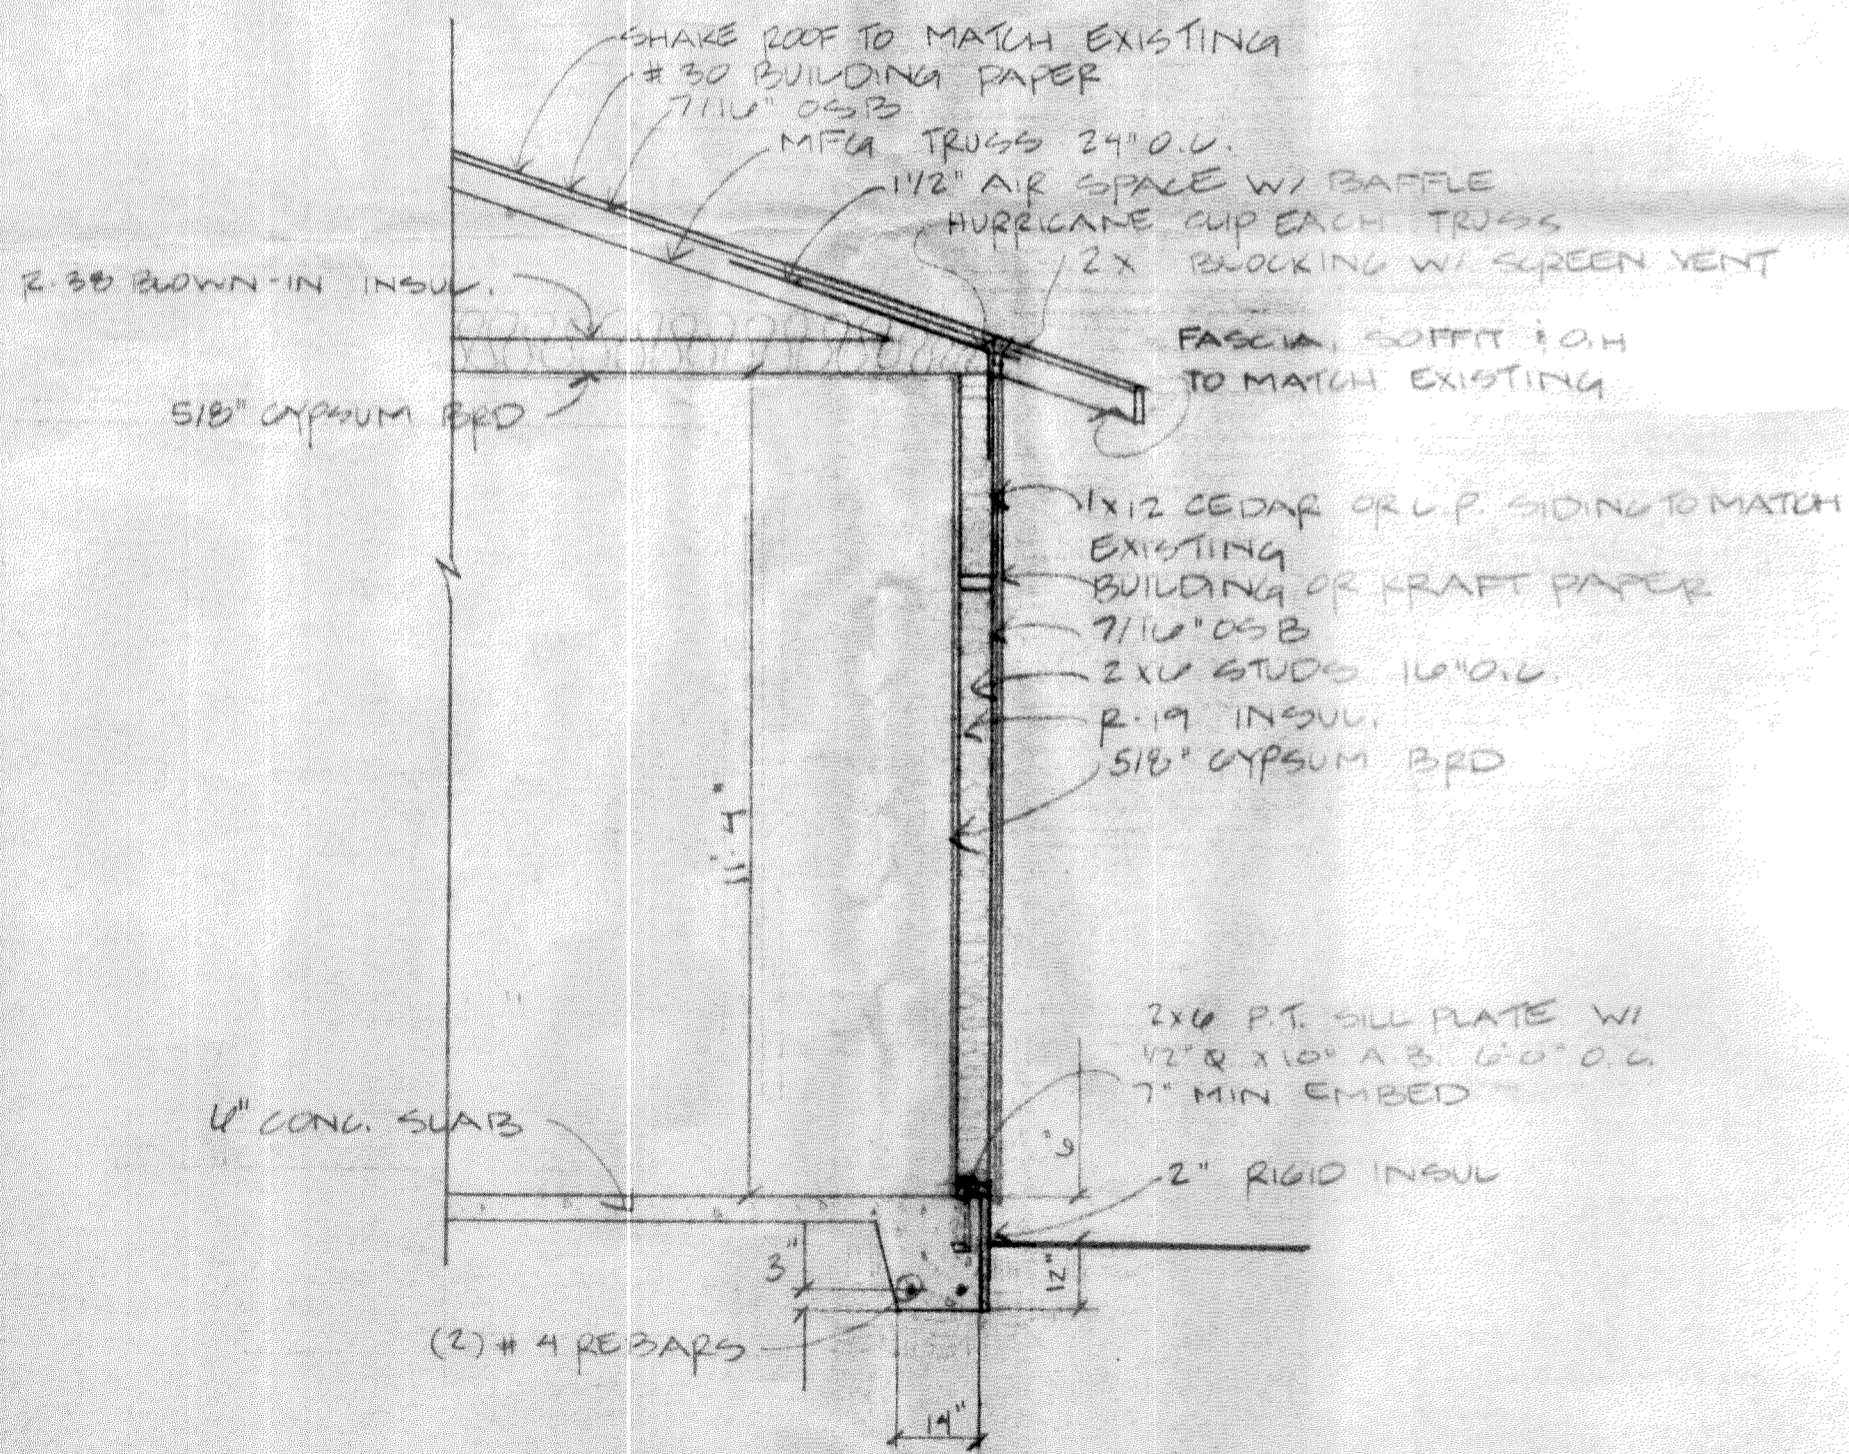 SHAKE ROOF TO MATCH EXISTING
# 30 BUILDING PAPER
7/16" OSB
MFG TRUSS 24" O.C.
1 1/2" AIR SPACE W/ BAFFLE
HURRICANE CLIP EACH TRUSS
2X BLOCKING W/ SCREEN VENT
R-38 BLOWN-IN INSUL.
FASCIA, SOFFIT & O.H
TO MATCH EXISTING
5/8" GYPSUM BRD
1X12 CEDAR OR L.P. SIDING TO MATCH
EXISTING
BUILDING OR KRAFT PAPER
7/16" OSB
2X6 STUDS 16" O.C.
R-19 INSUL.
5/8" GYPSUM BRD
11'-4"
2X6 P.T. SILL PLATE W/
1/2" Ø X 10" A.B. 6'-0" O.C.
7" MIN EMBED
CONC. SLAB
2" RIGID INSUL
3"
12"
(2) # 4 REBARS
14"